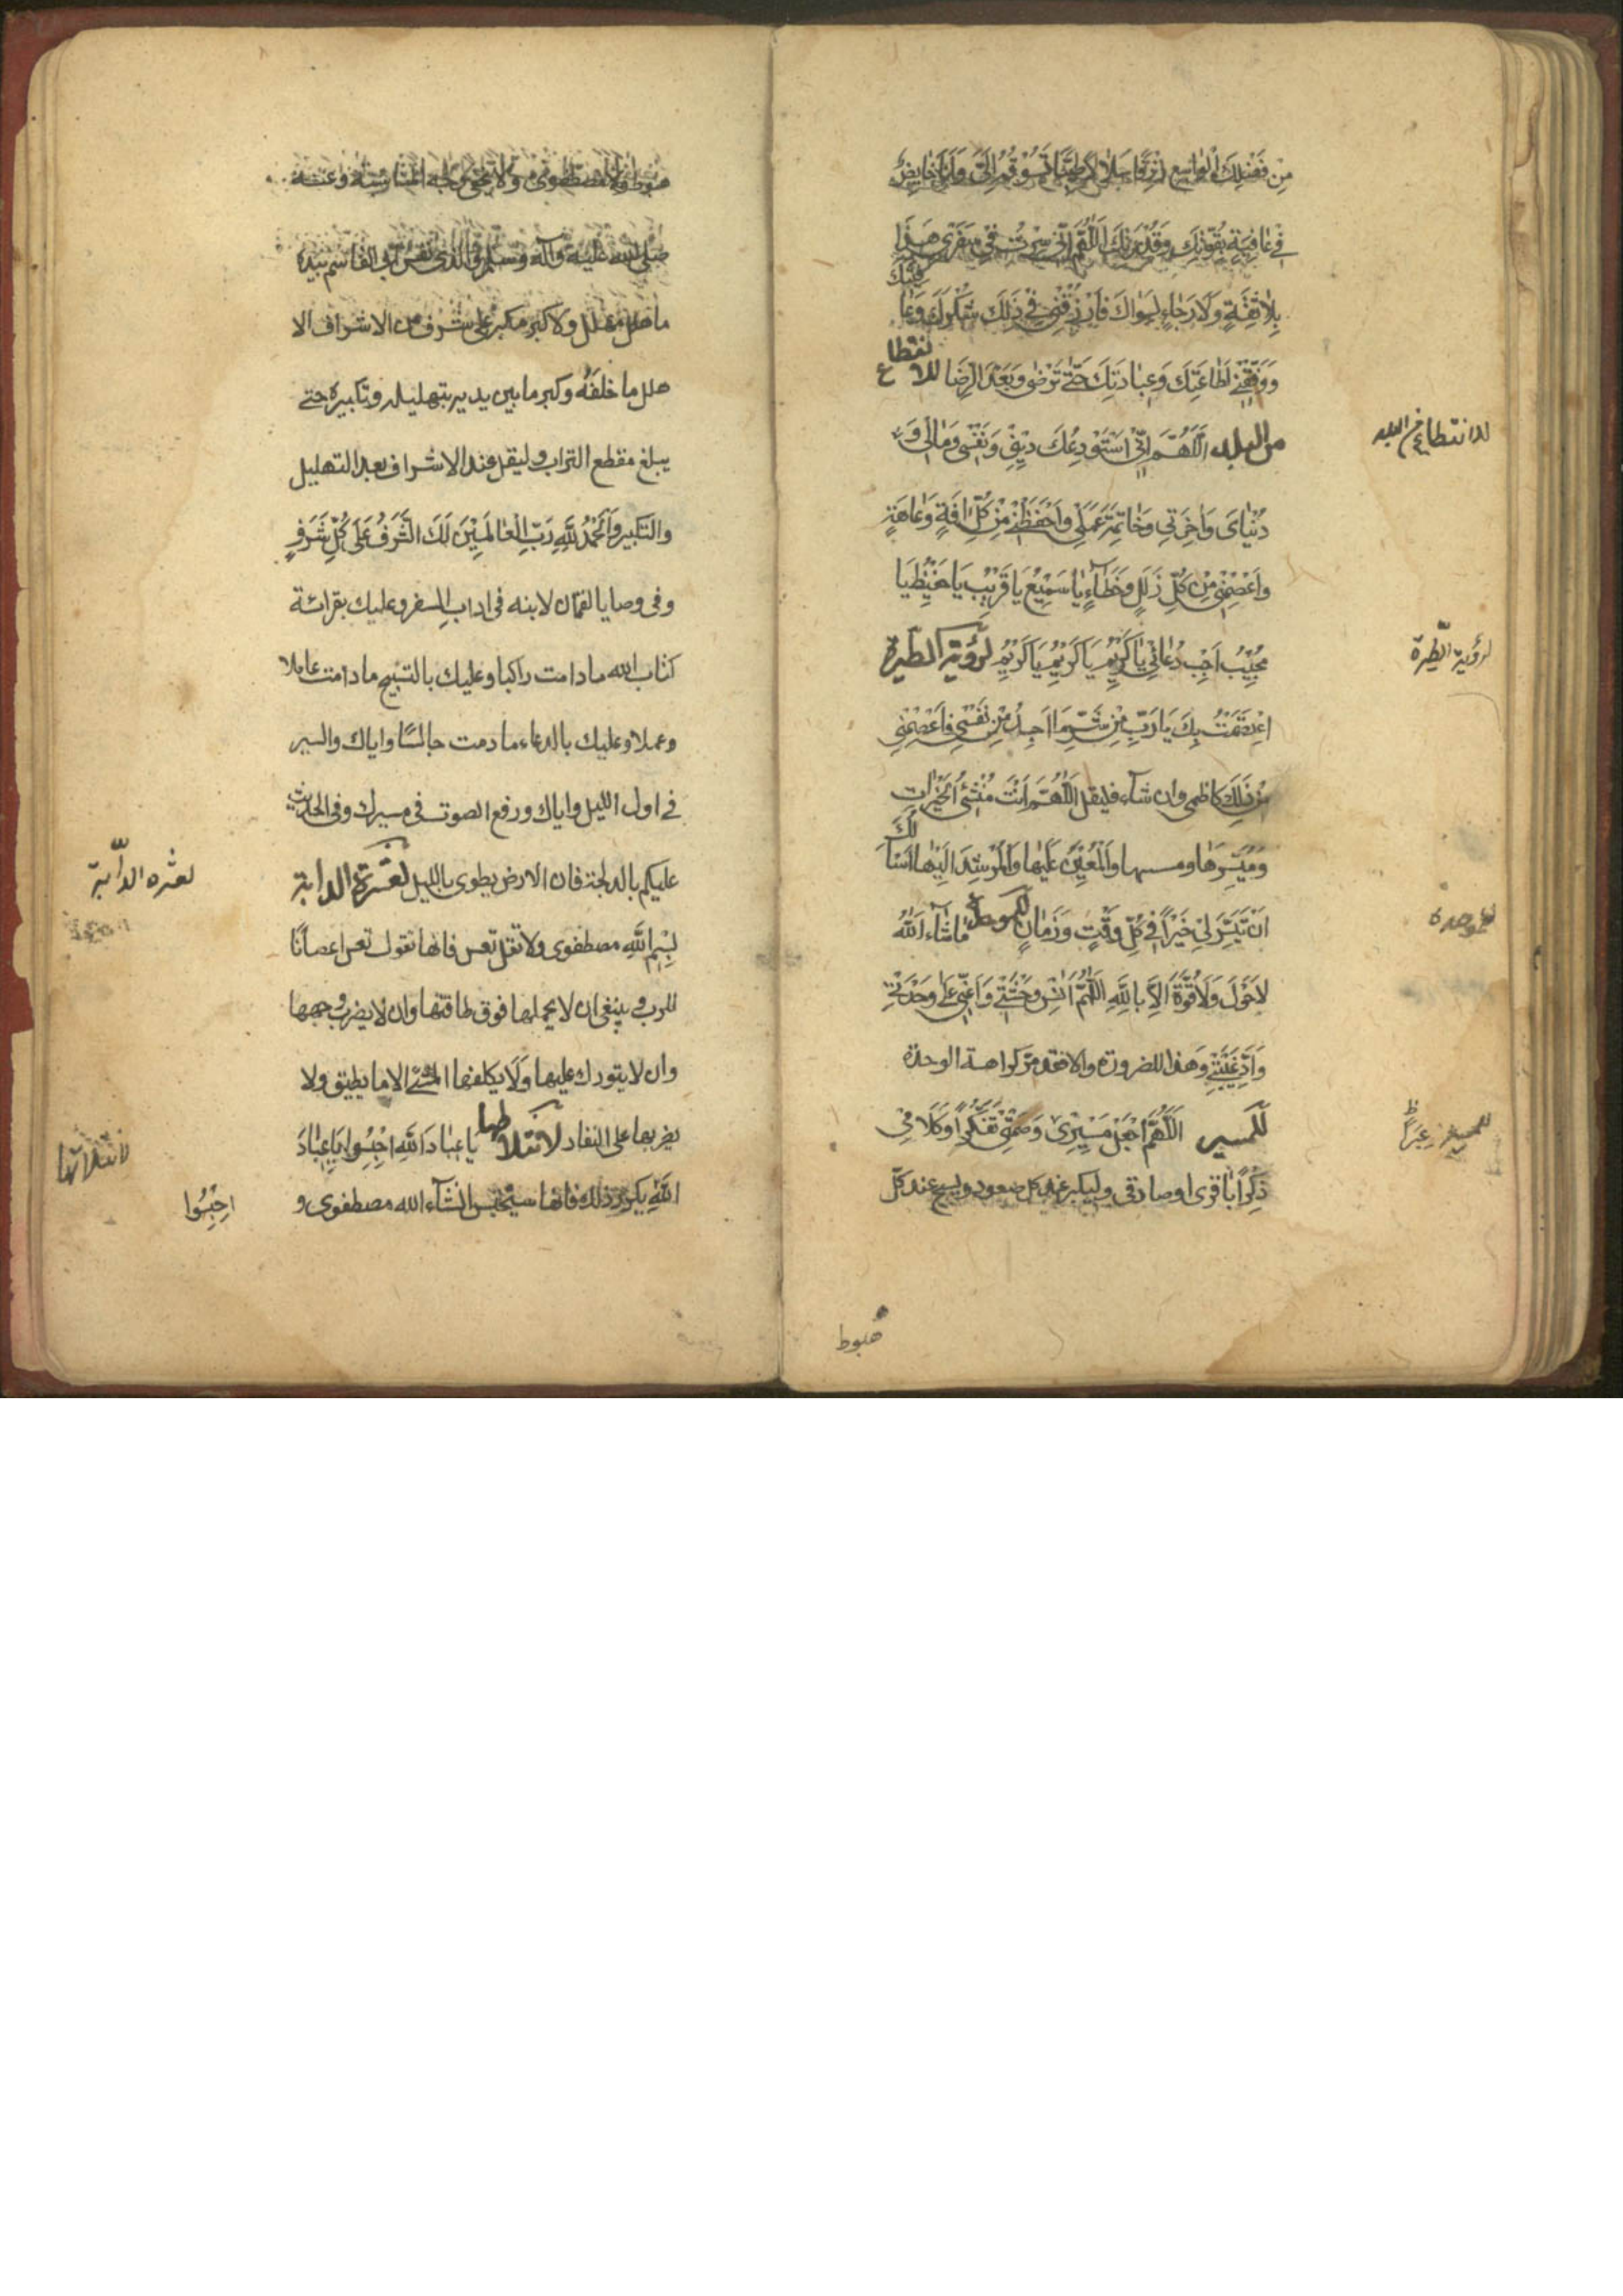 مِن فَضْلِكَ الْوَاسِعِ رِزْقًا حَلَالًا طَيِّبًا تَسُوقُهُ إِلَيَّ وَأَنَا خَايِضٌ
فِي عَافِيَةٍ بِقُوَّتِكَ وَقُدْرَتِكَ اللَّهُمَّ إِنِّي سِرْتُ فِي سَفَرِي هَذَا
بِلَا ثِقَةٍ وَلَا رَجَاءٍ لِسِوَاكَ فَارْزُقْنِي فِي ذَلِكَ شُكْرَكَ وَعَا
فِيَتَكَ
وَوَفِّقْنِي لِطَاعَتِكَ وَعِبَادَتِكَ حَتَّى تَرْضَى وَبَعْدَ الرِّضَا للانقطاع
من البلد اَللَّهُمَّ اِنِّي اَسْتَوْدِعُكَ دِينِي وَنَفْسِي وَمَالِي وَ
للانقطاع من البلد
دُنْيَايَ وَاٰخِرَتِي وَخَاتِمَةَ عَمَلِي وَاحْفَظْنِي مِنْ كُلِّ اٰفَةٍ وَعَاهَةٍ
وَاعْصِمْنِي مِنْ كُلِّ زَلَلٍ وَخَطَاءٍ يَا سَمِيعُ يَا قَرِيبُ يَا حَفِيظُ يَا
مُجِيبُ اَجِبْ دُعَائِي يَا كَرِيمُ يَا كَرِيمُ يَا كَرِيمُ لرؤية الطيرة
لرؤية الطِّيَرة
اِعْتَصَمْتُ بِكَ يَا رَبِّ مِنْ شَرِّ مَا اَجِدُ مِنْ نَفْسِي فَاعْصِمْنِي
مِنْ ذَلِكَ كاظمى وان شآء فليقل اَللّٰهُمَّ اَنْتَ مُنْشِئُ الْخَيْرَاتِ
وَمُيَسِّرُهَا وَالْمُعِينُ عَلَيْهَا وَالْمُرْشِدُ اِلَيْهَا اَسْأَلُكَ
اَنْ تُيَسِّرَ لِي خَيْرًا فِي كُلِّ وَقْتٍ وَزَمَانٍ للوحدة مَا شَآءَ اللّٰهُ
للوحدة
لَا حَوْلَ وَلَا قُوَّةَ اِلَّا بِاللّٰهِ اَللّٰهُمَّ اٰنِسْ وَحْشَتِي وَاَعِنِّي عَلَى وَحْدَتِي
وَاَدِّ غَيْبَتِي وهذا للضرورة والا فقد مر كراهة الوحدة
للمسير اَللّٰهُمَّ اجْعَلْ مَسِيرِي وَصَمْتِي تَفَكُّرًا وَكَلَامِي
للمسير عِبَرًا ظ
ذِكْرًا باقرى او صادقى وليكبر عند كل صعود ويسبح عند كل
هبوط
صلى الله عليه وآله وسلم والذى نفس ابى القاسم بيده
ما هلل مهلل ولا كبر مكبر على شرف من الاشراف الا
هلل ما خلفه وكبر ما بين يديه بتهليله وتكبيره حتى
يبلغ مقطع التراب وليقل عند الاشراف بعد التهليل
والتكبير وَالْحَمْدُ لِلّٰهِ رَبِّ الْعَالَمِينَ لَكَ الشَّرَفُ عَلَى كُلِّ شَرَفٍ
وفى وصايا لقمان لابنه فى اداب السفر وعليك بقرائة
كتاب الله ما دامت راكبا وعليك بالتسبيح ما دامت عاملا
وعملا وعليك بالدعاء ما دمت جالسًا واياك والسير
فى اول الليل واياك ورفع الصوت فى مسيرك وفى الحديث
عليكم بالدلجة فان الارض يطوى بالليل لعثرة الدابة
لعثره الدآبّة
بِسْمِ اللّٰهِ مصطفوى ولا تقل تعس فانها تقول تعس اعصانا
للرب وينبغى ان لا يحملها فوق طاقتها وان لا يضرب وجهها
وان لا يتورك عليها وَلَا يكلفها المشى الا ما يطيق ولا
يضربها على النفار لانفلاتها يَا عِبَادَ اللّٰهِ احْبِسُوا يَا عِبَادَ
لانفلاتها
اللّٰهِ يكرر ذلك فانها سيحبس انشآء الله مصطفوى و
احْبِسُوا